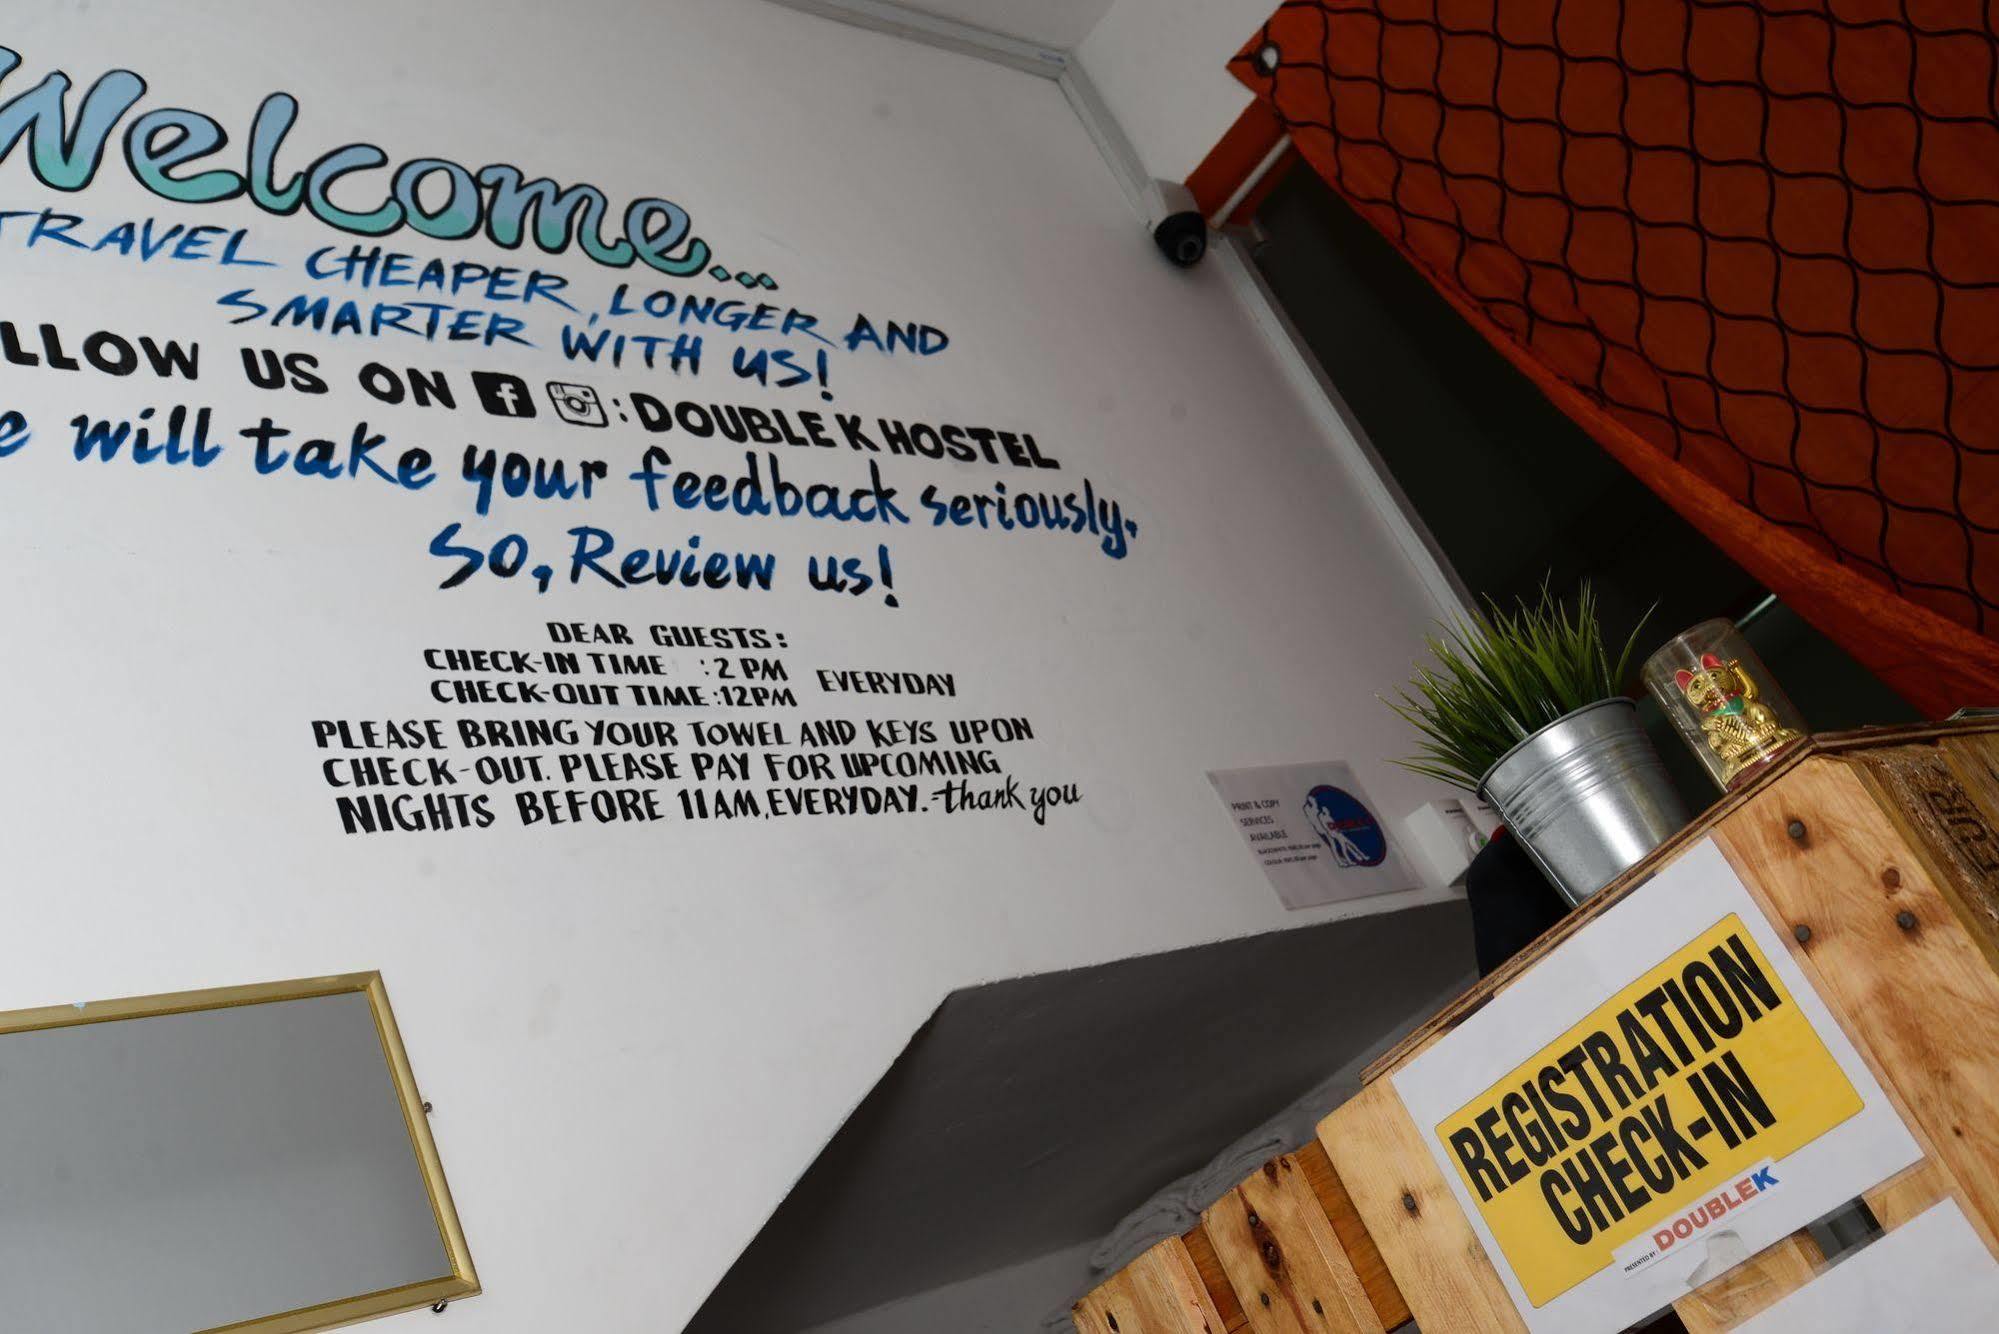 Welcome...
TRAVEL CHEAPER, LONGER AND
SMARTER WITH US!
LLOW US ON f : DOUBLE K HOSTEL
e will take your feedback seriously.
So, Review us!
DEAR GUESTS:
CHECK-IN TIME : 2 PM
CHECK-OUT TIME : 12PM EVERYDAY
PLEASE BRING YOUR TOWEL AND KEYS UPON
CHECK-OUT. PLEASE PAY FOR UPCOMING
NIGHTS BEFORE 11AM, EVERYDAY. -thank you
PRINT & COPY
SERVICES
AVAILABLE
REGISTRATION
CHECK-IN
PRESENTED BY DOUBLEK